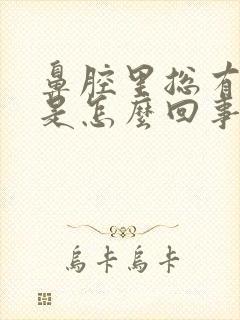 鼻腔里总有
是怎麼回事
烏卡烏卡